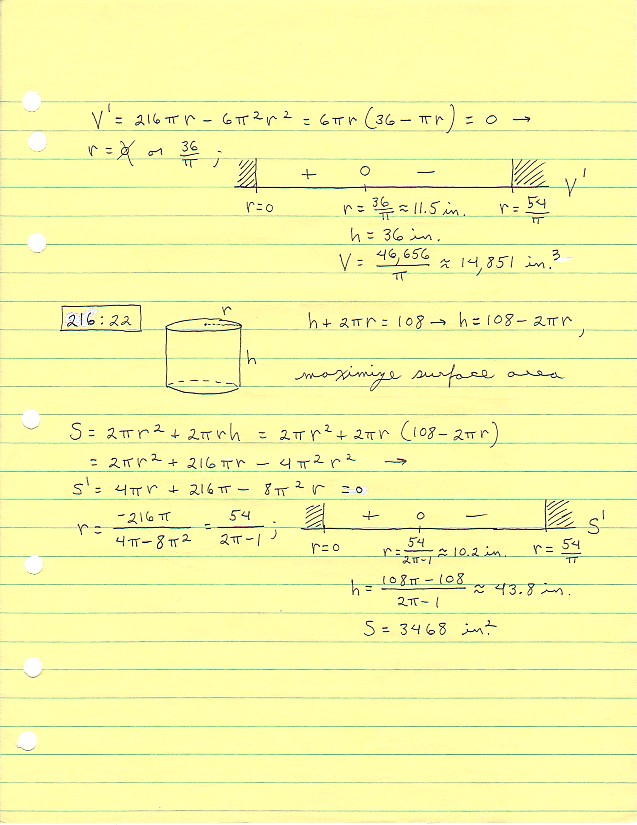 V' = 216πr − 6π²r² = 6πr (36 − πr) = 0 →
r = 0 or 36/π ;
+ 0 − V'
r=0 r = 36/π ≈ 11.5 in. r = 54/π
h = 36 in.
V = 46,656/π ≈ 14,851 in.³
216 : 22 r h h + 2πr = 108 → h = 108 − 2πr,
maximize surface area
S = 2πr² + 2πrh = 2πr² + 2πr (108 − 2πr)
= 2πr² + 216πr − 4π²r² →
S' = 4πr + 216π − 8π²r = 0
r = −216π/(4π − 8π²) = 54/(2π − 1) ; + 0 − S'
r=0 r = 54/(2π−1) ≈ 10.2 in. r = 54/π
h = (108π − 108)/(2π − 1) ≈ 43.8 in.
S = 3468 in.²